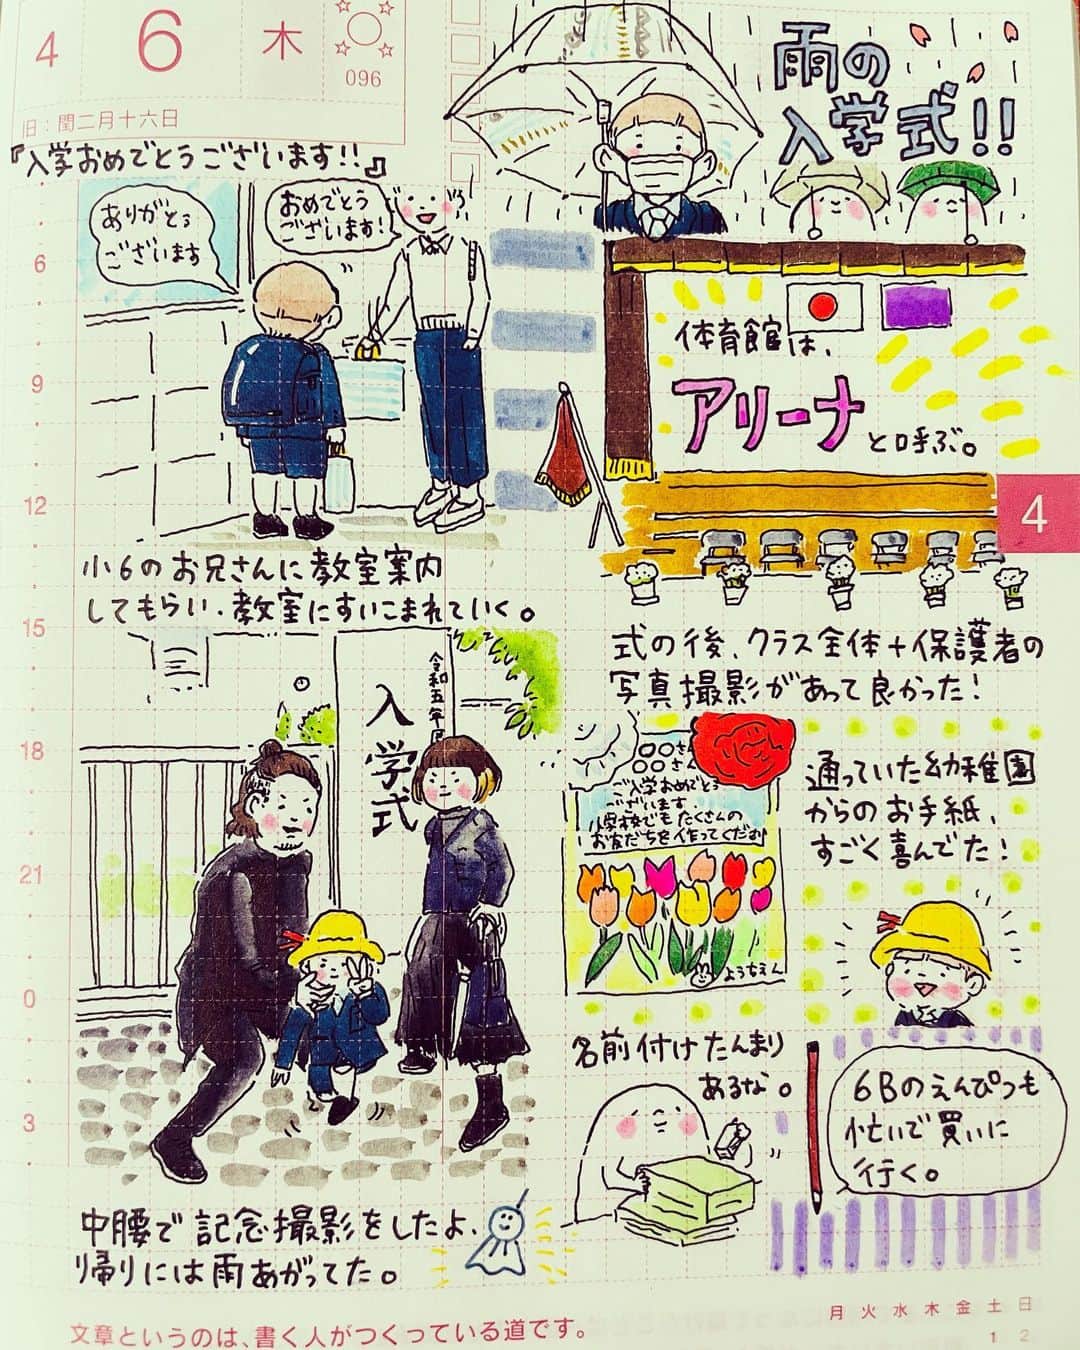 4 6 木
096
旧:閏二月十六日
『入学おめでとうございます!!』
ありがとう
ございます
おめでとう
ございます!
雨の
入学式!!
体育館は、
アリーナと呼ぶ。
小6のお兄さんに教室案内
してもらい、教室にすいこまれていく。
式の後、クラス全体+保護者の
写真撮影があって良かった!
令和五年
入学式
中腰で記念撮影をしたよ、
帰りには雨あがってた。
○○さん
○○さん
ご入学おめでとう
ございます。
小学校でもたくさんの
お友だちを作ってくだ
ようちえん
通っていた幼稚園
からのお手紙、
すごく喜んでた!
名前付けたんまり
あるな。
6Bのえんぴつも
忙いで買いに
行く。
6
9
12
15
18
21
0
3
4
文章というのは、書く人がつくっている道です。
月 火 水 木 金 土 日
1 2